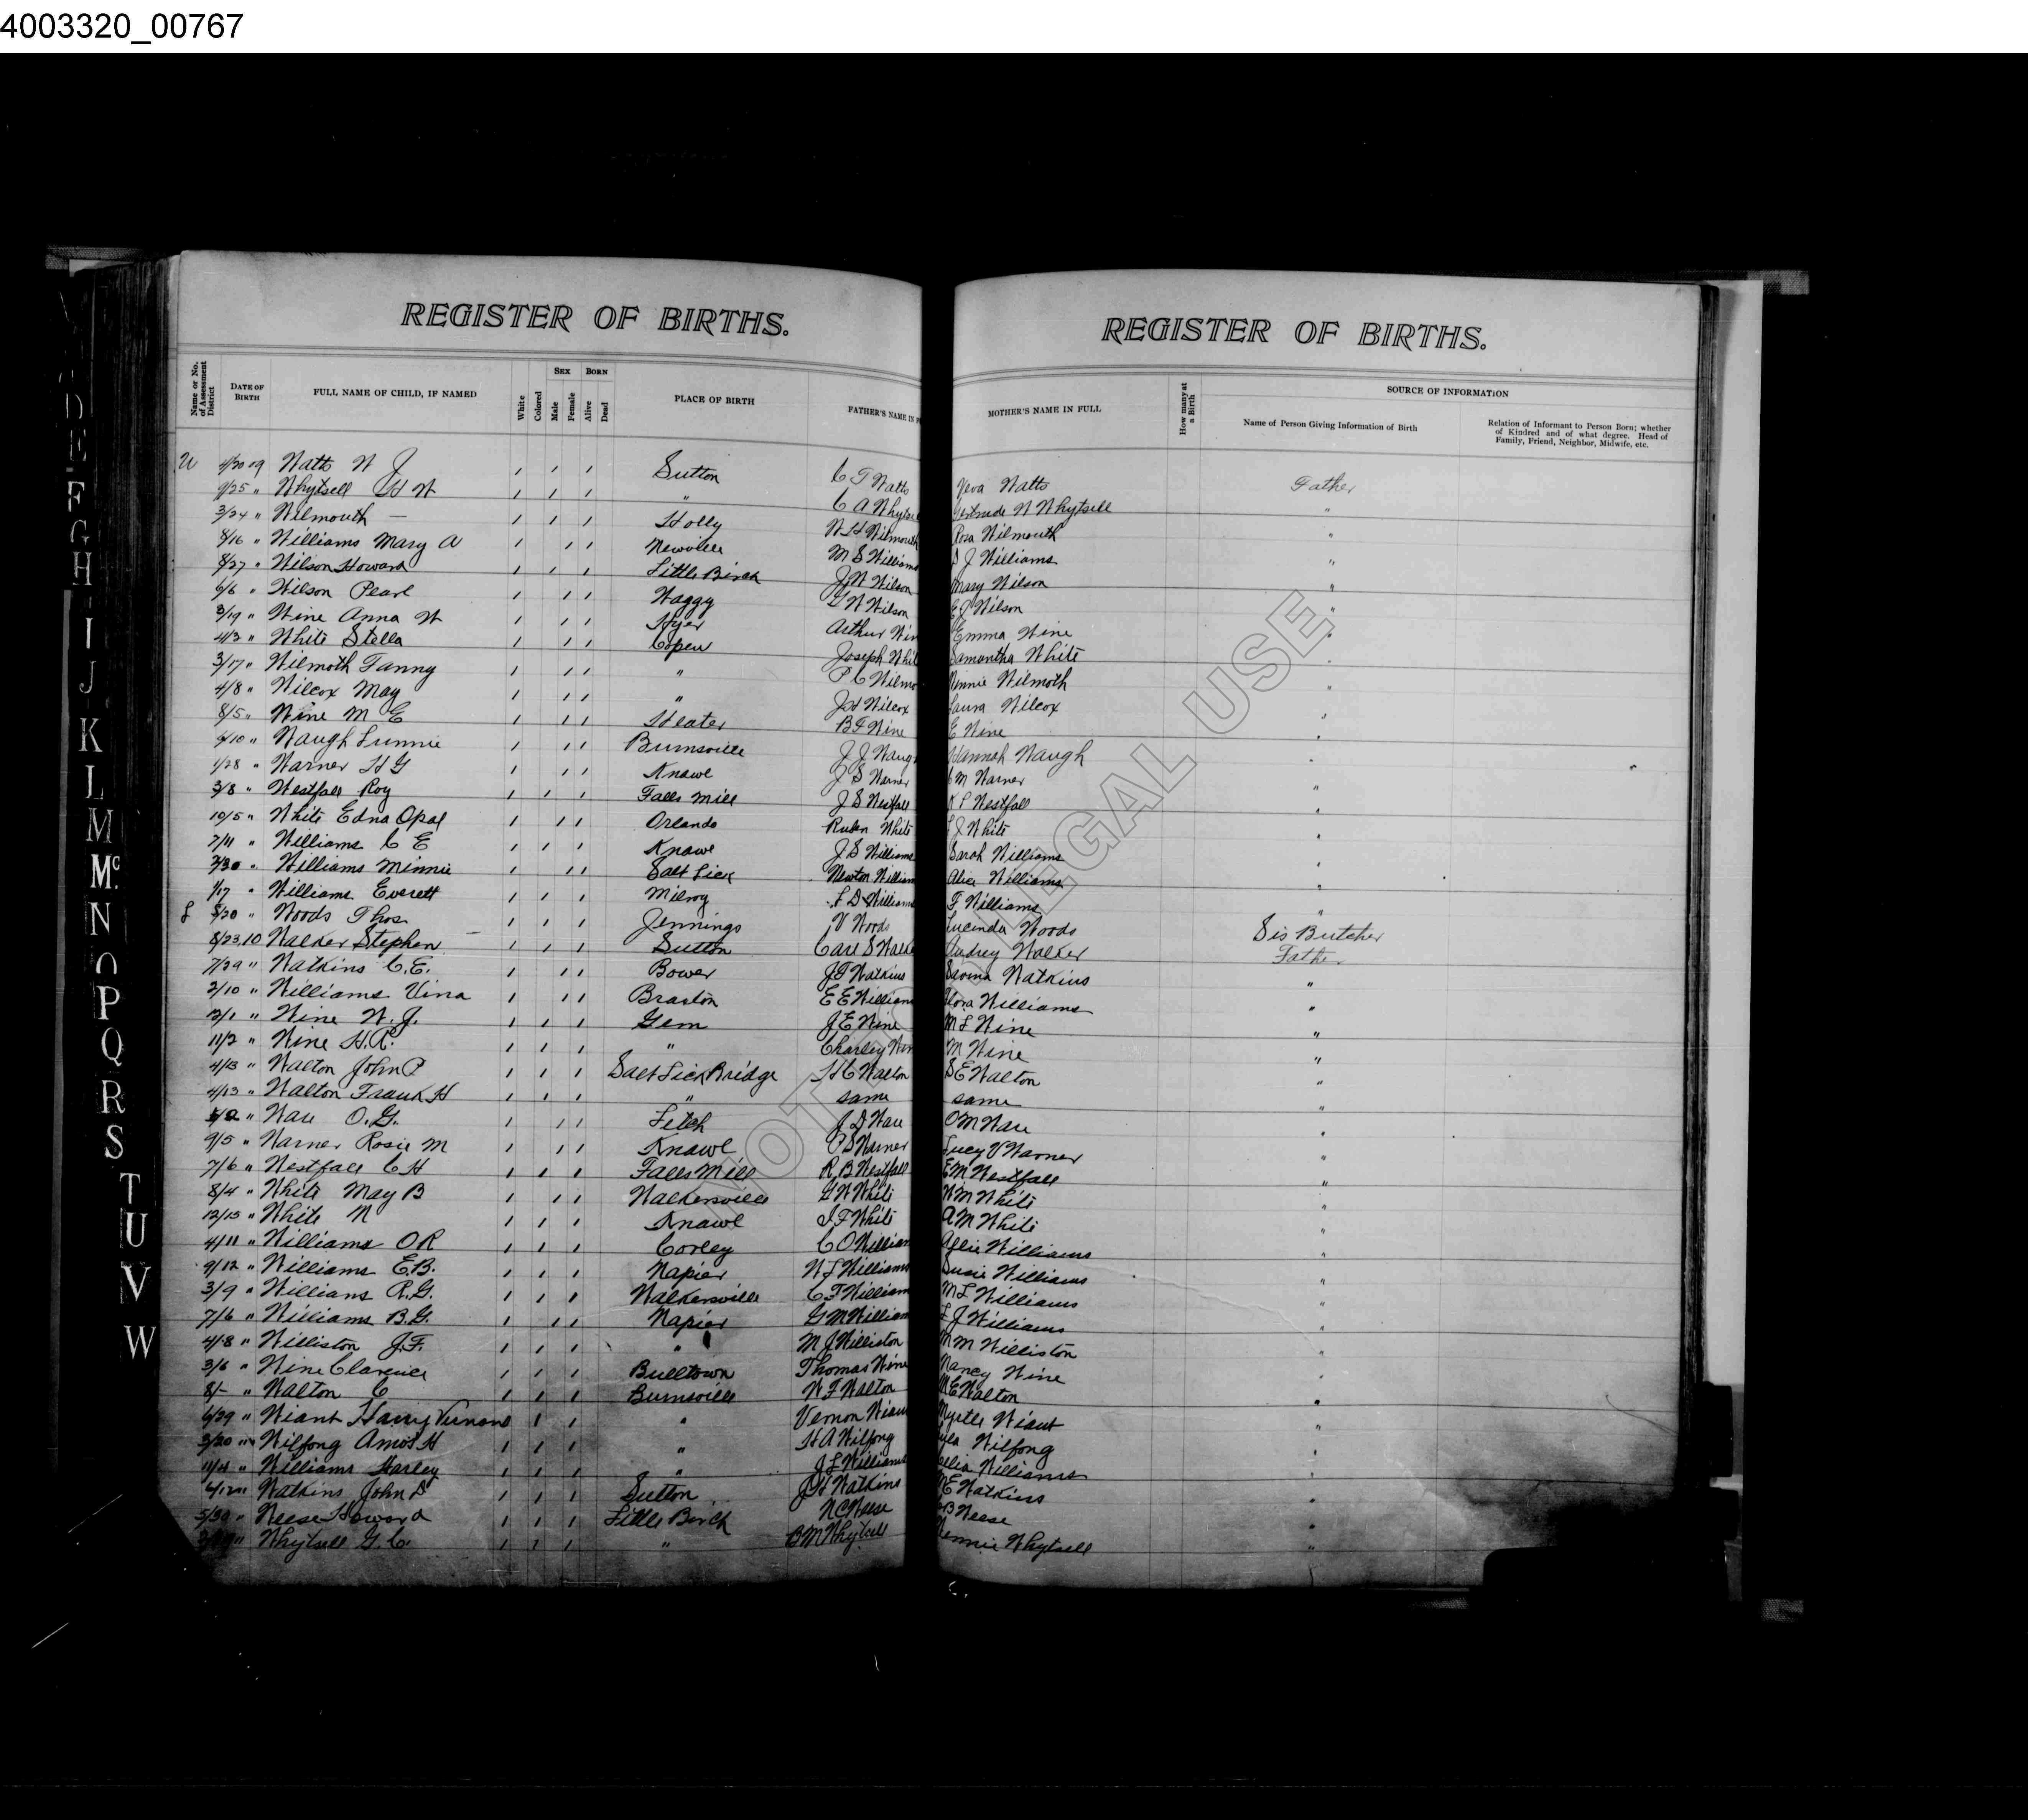 4003320_00767
REGISTER OF BIRTHS.
REGISTER OF BIRTHS.
Name or No. of Assessment District
DATE OF BIRTH
FULL NAME OF CHILD, IF NAMED
White
Colored
SEX
Male
Female
BORN
Alive
Dead
PLACE OF BIRTH
FATHER'S NAME IN
MOTHER'S NAME IN FULL
How many at a Birth
SOURCE OF INFORMATION
Name of Person Giving Information of Birth
Relation of Informant to Person Born; whether of Kindred and of what degree. Head of Family, Friend, Neighbor, Midwife, etc.
4/20 09 Watts W J Sutton C T Watts Veva Watts Father
9/25 " Whytsell G W " C A Whytse Gertrude W Whytsell "
3/24 " Wilmouth — Holly W H Wilmouth Rosa Wilmouth "
8/16 " Williams Mary A Newville M S Williams S J Williams "
8/27 " Wilson Howard Little Birch J W Wilson Mary Wilson "
6/6 " Wilson Pearl Waggy G W Wilson E J Wilson "
3/19 " Wine Anna W Hyer Arthur Win Emma Wine "
4/3 " White Stella Copen Joseph Whit Samantha White "
3/17 " Wilmoth Fanny " P C Wilmo Wilmoth "
4/8 " Wilcox May " J H Wilcox Laura Wilcox "
8/5 " Wine M E Heater B F Wine E Wine "
4/10 " Waugh Lunnie Burnsville J J Waug Hannah Waugh "
1/28 " Warner H G Knawl J S Warner C M Warner "
3/8 " Westfall Roy Falls Mill J S Westfall K L Westfall "
10/5 " White Edna Opal Orlando Ruben White L J White "
7/11 " Williams C E Knawl J S Williams Sarah Williams "
7/30 " Williams Minnie Salt Lick Newton William Alice Williams "
1/17 " Williams Everett Milroy L D Williams F Williams "
L 5/20 " Woods Thos Jennings V Woods Lucinda Woods Sis Butcher
8/23 10 Walker Stephen — Sutton Carl S Walke Audrey Walker Father
7/29 " Watkins C.E. Bower J F Watkins Watkins "
2/10 " Williams Vina Braxton E E William Flora Williams "
12/1 " Wine W.J. Gem J E Wine M L Wine "
11/2 " Wine H.R. " Charley Win M Wine "
4/13 " Walton John P Salt Lick Bridge H C Walton S E Walton "
4/13 " Walton Frank H " same same "
" Ware O.G. J D Ware O M Ware "
9/5 " Warner Rosie M Knawl P S Warner Lucy V Warner "
7/6 " Westfall C H Falls Mill R B Westfall E M Westfall "
8/4 " White May B Walkersville G W White W M White "
12/15 " White M Knawl I F White A M White "
4/11 " Williams O R Corley C O William Allie Williams "
9/12 " Williams E.B. Napier W L Williams Susie Williams "
3/9 " Williams R.G. Walkersville C T William M L Williams "
7/6 " Williams B.G. Napier G M William L J Williams "
4/18 " Williston J.F. " M J Williston M M Williston "
3/6 " Wine Clarence Bulltown Thomas Wine Nancy Wine "
8/- " Walton C Burnsville W F Walton M E Walton "
6/29 " Wiant Harry Vernon " Vernon Wian Myrtle Wiant "
3/20 " Wilfong Amos H " H A Wilfong Wilfong "
11/4 " Williams Harley " J L Williams Williams "
6/12 " Watkins John D Sutton J H Watkins M E Watkins "
5/30 " Weese Howard Little Birch W C Weese B Weese "
Whytsell G.C. " B M Whytsell Whytsell "
NOT LEGAL USE
D
E
F
G
H
I
J
K
L
M
Mc.
N
O
P
Q
R
S
T
U
V
W